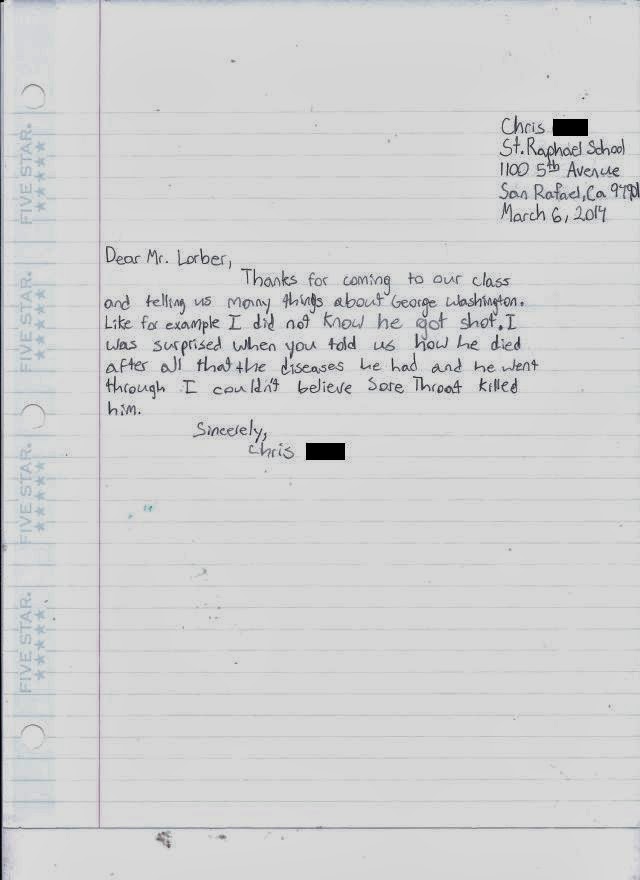 Chris
St. Raphael School
1100 5th Avenue
San Rafael, Ca 94901
March 6, 2014
Dear Mr. Lorber,
Thanks for coming to our class
and telling us many things about George Washington.
Like for example I did not know he got shot. I
was surprised when you told us how he died
after all that the diseases he had and he went
through I couldn't believe Sore Throat killed
him.
Sincerely,
Chris
FIVE STAR.
FIVE STAR.
FIVE STAR.
FIVE STAR.